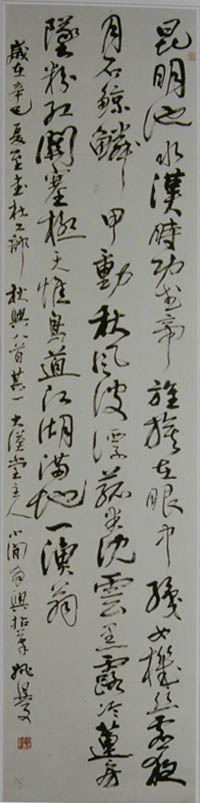 昆明池水漢時功武帝旌旗在眼中織女機絲虛夜
月石鯨鱗甲動秋風波漂菰米沈雲黑露冷蓮房
墜粉紅關塞極天惟鳥道江湖滿地一漁翁
歲在辛巳夏至書杜工部秋興八首其一大漢堂主人小閒有興拈筆姚